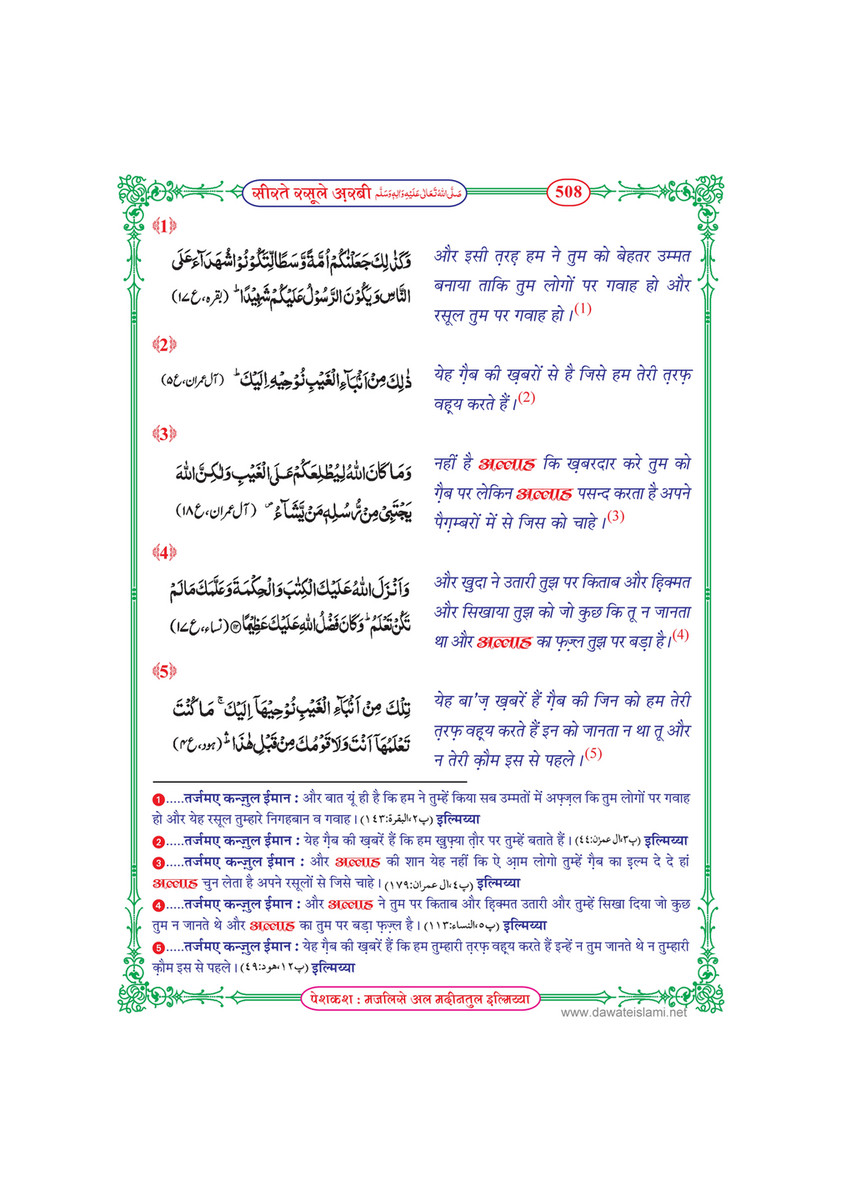 सीरते रसूले अ़रबी صَلَّى اللهُ تَعَالٰى عَلَيْهِ وَاٰلِهٖ وَسَلَّم
508
﴾1﴿
وَكَذٰلِكَ جَعَلْنٰكُمْ اُمَّةً وَّسَطًا لِّتَكُوْنُوْا شُهَدَآءَ عَلَى
النَّاسِ وَيَكُوْنَ الرَّسُوْلُ عَلَيْكُمْ شَهِيْدًا ؕ (بقرہ، ع۱۷)
और इसी त़रह़ हम ने तुम को बेहतर उम्मत
बनाया ताकि तुम लोगों पर गवाह हो और
रसूल तुम पर गवाह हो ।(1)
﴾2﴿
ذٰلِكَ مِنْ اَنْۢبَآءِ الْغَيْبِ نُوْحِيْهِ اِلَيْكَ ؕ (آل عمران، ع۵)
येह ग़ैब की ख़बरों से है जिसे हम तेरी त़रफ़
वह़्य करते हैं ।(2)
﴾3﴿
وَمَا كَانَ اللهُ لِيُطْلِعَكُمْ عَلَى الْغَيْبِ وَلٰكِنَّ اللهَ
يَجْتَبِيْ مِنْ رُّسُلِهٖ مَنْ يَّشَآءُ ۪ (آل عمران، ع۱۸)
नहीं है अल्लाह कि ख़बरदार करे तुम को
ग़ैब पर लेकिन अल्लाह पसन्द करता है अपने
पैग़म्बरों में से जिस को चाहे ।(3)
﴾4﴿
وَاَنْزَلَ اللهُ عَلَيْكَ الْكِتٰبَ وَالْحِكْمَةَ وَعَلَّمَكَ مَا لَمْ
تَكُنْ تَعْلَمُ ؕ وَكَانَ فَضْلُ اللهِ عَلَيْكَ عَظِيْمًا ﴿۱۱۳﴾ (نساء، ع۱۷)
और ख़ुदा ने उतारी तुझ पर किताब और ह़िक्मत
और सिखाया तुझ को जो कुछ कि तू न जानता
था और अल्लाह का फ़ज़्ल तुझ पर बड़ा है ।(4)
﴾5﴿
تِلْكَ مِنْ اَنْۢبَآءِ الْغَيْبِ نُوْحِيْهَاۤ اِلَيْكَ ۚ مَا كُنْتَ
تَعْلَمُهَاۤ اَنْتَ وَلَا قَوْمُكَ مِنْ قَبْلِ هٰذَا ؕۛ (ہود، ع۴)
येह बा'ज़ ख़बरें हैं ग़ैब की जिन को हम तेरी
त़रफ़ वह़्य करते हैं इन को जानता न था तू और
न तेरी क़ौम इस से पहले ।(5)
1.....तर्जमए कन्ज़ुल ईमान : और बात यूं ही है कि हम ने तुम्हें किया सब उम्मतों में अफ़्ज़ल कि तुम लोगों पर गवाह
हो और येह रसूल तुम्हारे निगहबान व गवाह । (پ۲،البقرة:۱۴۳) इल्मिय्या
2.....तर्जमए कन्ज़ुल ईमान : येह ग़ैब की ख़बरें हैं कि हम ख़ुफ़्या त़ौर पर तुम्हें बताते हैं । (پ۳،ال عمرٰن:۴۴) इल्मिय्या
3.....तर्जमए कन्ज़ुल ईमान : और अल्लाह की शान येह नहीं कि ऐ आ़म लोगो तुम्हें ग़ैब का इ़ल्म दे दे हां
अल्लाह चुन लेता है अपने रसूलों से जिसे चाहे । (پ۴،ال عمران:۱۷۹) इल्मिय्या
4.....तर्जमए कन्ज़ुल ईमान : और अल्लाह ने तुम पर किताब और ह़िक्मत उतारी और तुम्हें सिखा दिया जो कुछ
तुम न जानते थे और अल्लाह का तुम पर बड़ा फ़ज़्ल है । (پ۵،النساء:۱۱۳) इल्मिय्या
5.....तर्जमए कन्ज़ुल ईमान : येह ग़ैब की ख़बरें हैं कि हम तुम्हारी त़रफ़ वह़्य करते हैं इन्हें न तुम जानते थे न तुम्हारी
क़ौम इस से पहले । (پ۱۲،ھود:۴۹) इल्मिय्या
पेशकश : मजलिसे अल मदीनतुल इल्मिय्या
www.dawateislami.net